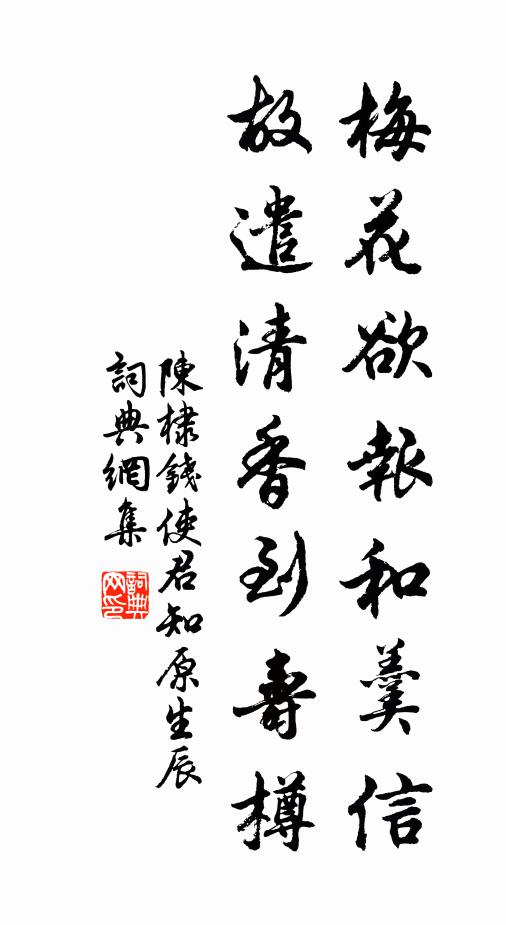 梅花欲報和羹信
故遣清香到壽樽
陳棣錢使君知原生辰
詞典網集
詞典網印